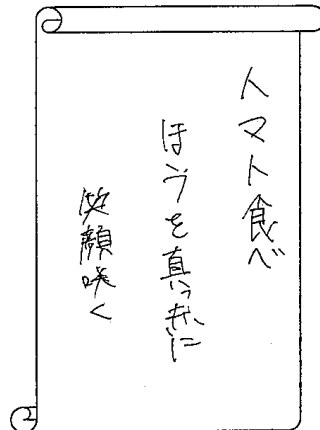 トマト食べ
ほうを真っ赤に
笑顔咲く